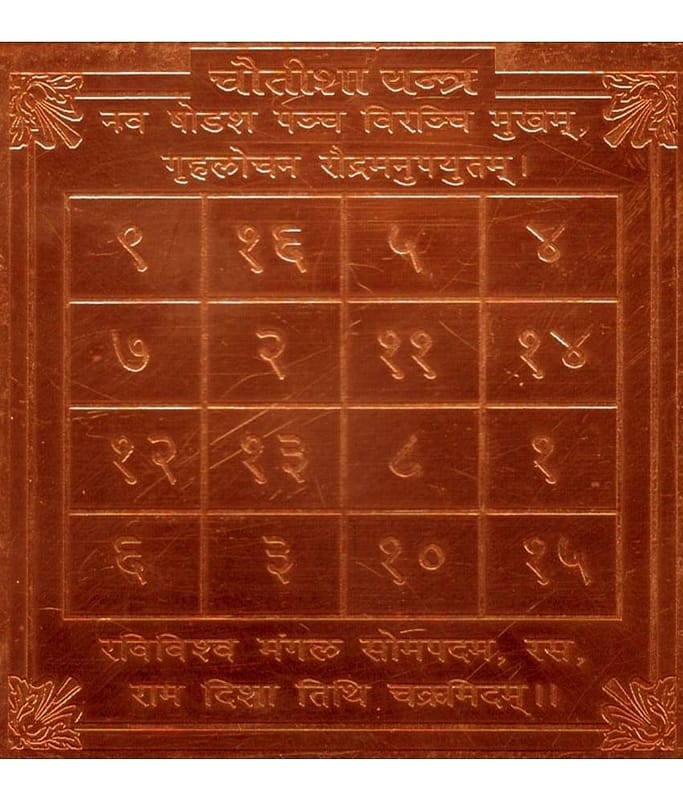 चौतीशा यन्त्र
नव षोडश पञ्च विरञ्चि मुखम्,
गृहलोचन रौद्रमनुपयुतम्।
९ १६ ५ ४
७ २ ११ १४
१२ १३ ८ १
६ ३ १० १५
रविविश्व मंगल सोमपदम, रस,
राम दिशा तिथि चक्रमिदम्।।